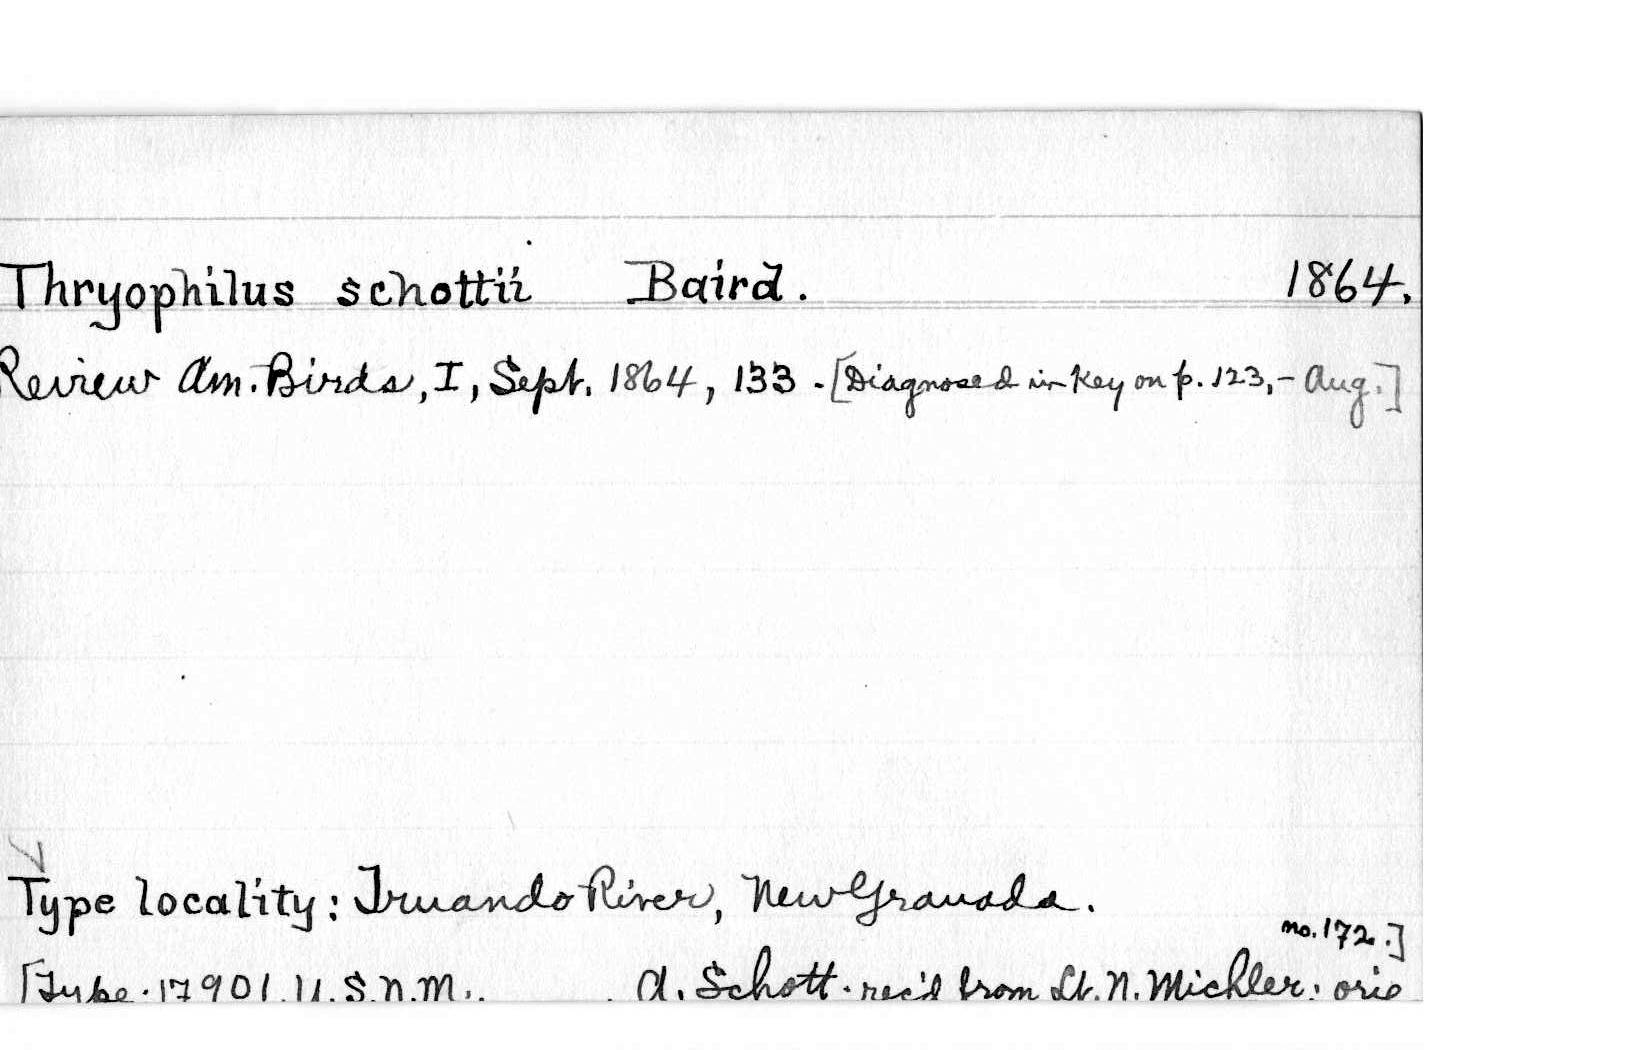 Thryophilus schottii Baird. 1864.
Review Am. Birds, I, Sept. 1864, 133 - [Diagnosed in key on p. 123, - Aug.]
Type locality: Truando River, New Granada.
no. 172.]
[Type. 17901. U.S.N.M.. A. Schott. rec'd from Lt. N. Michler: orig